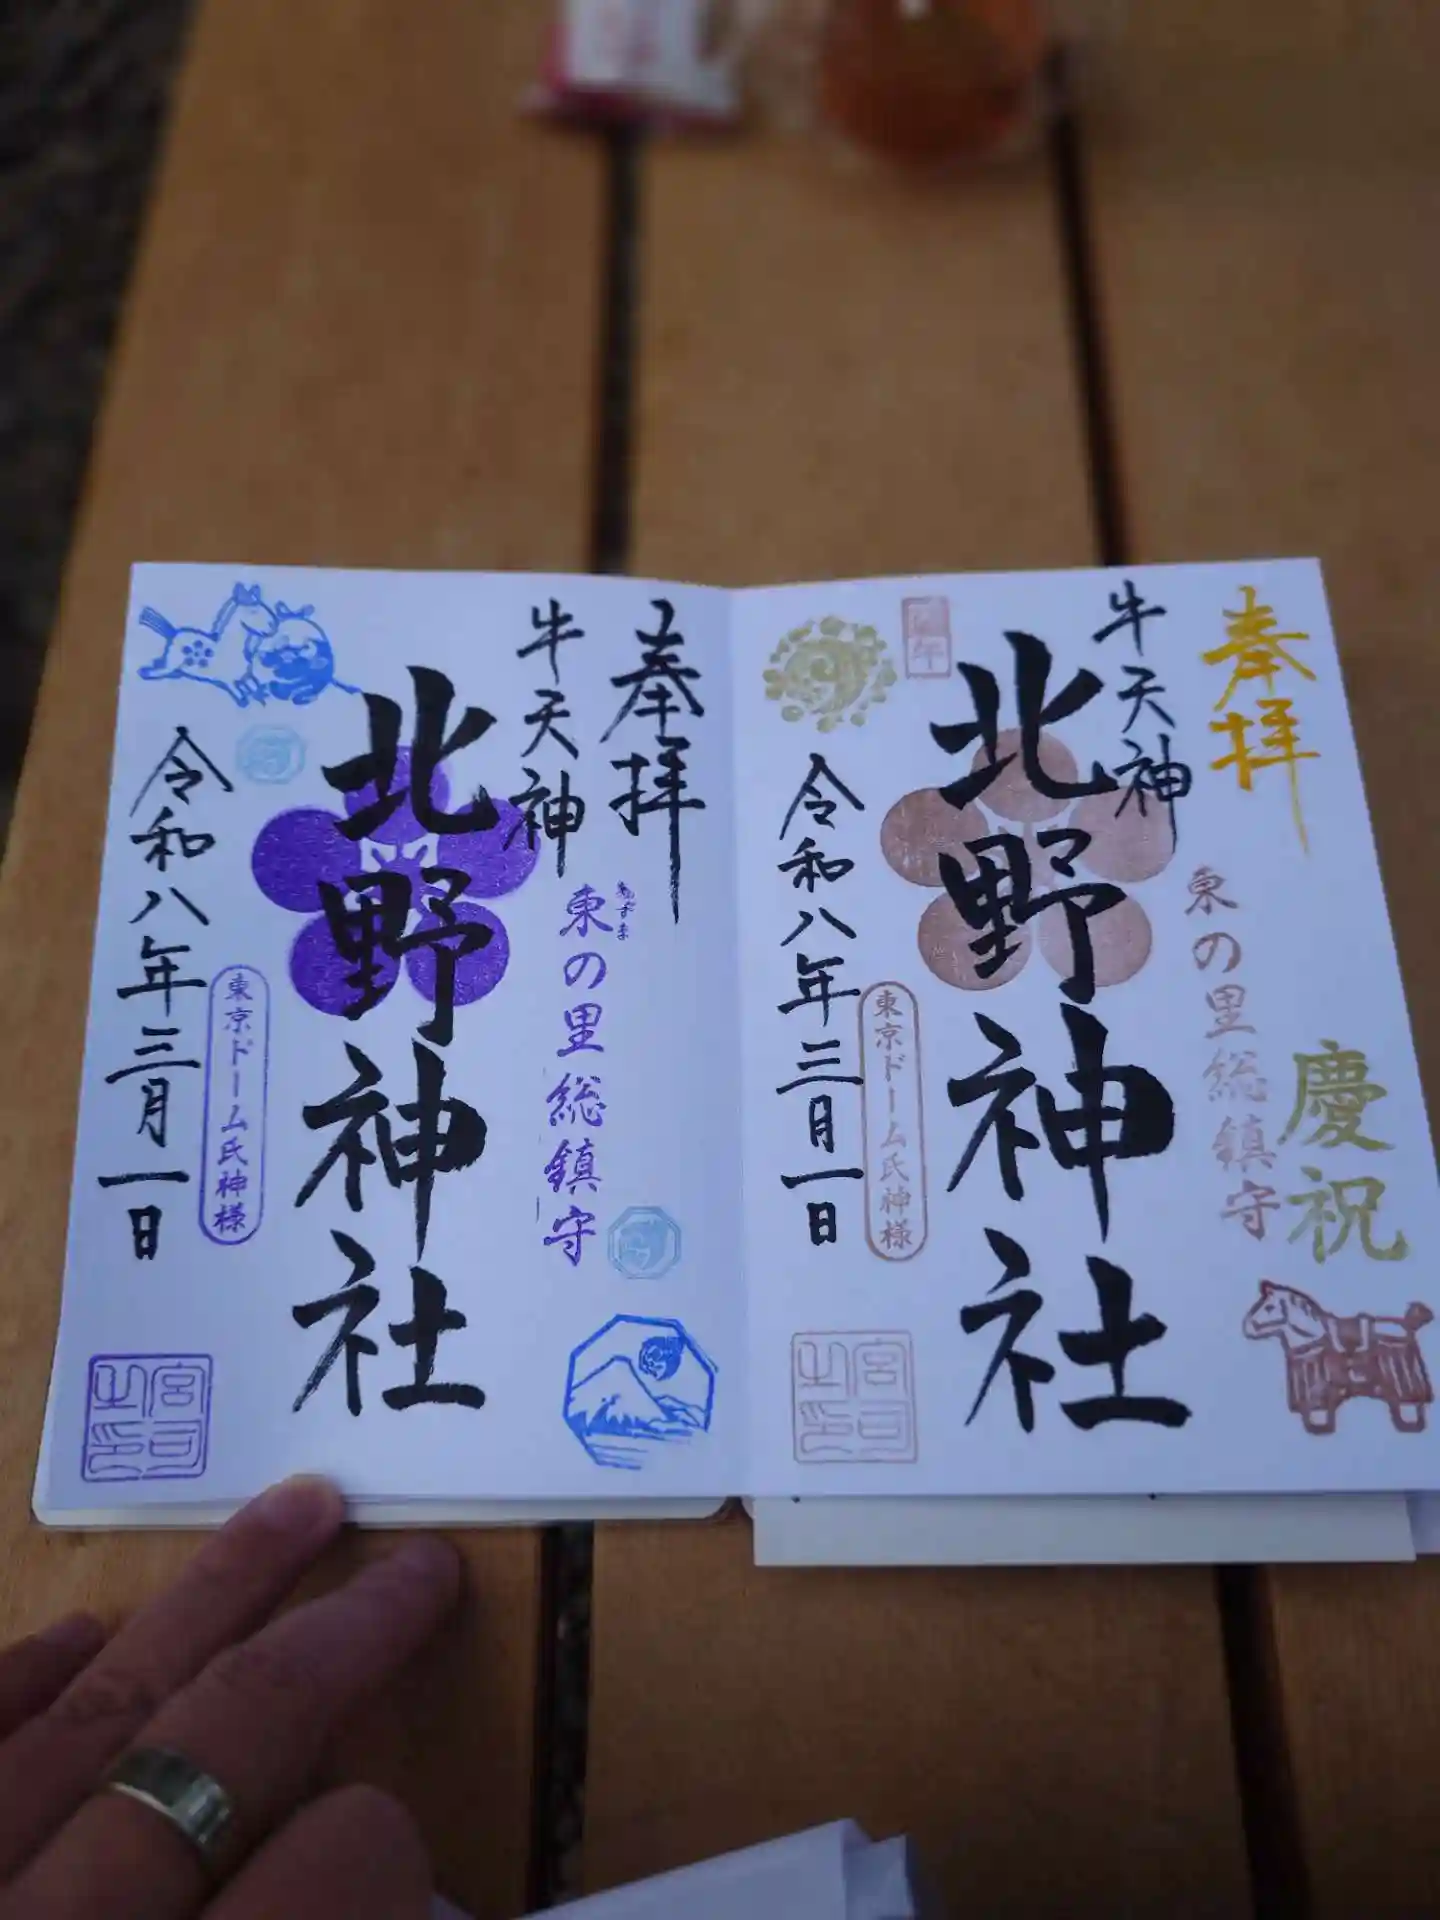 奉拝
牛天神
北野神社
東の里総鎮守
慶祝
令和八年三月一日
東京ドーム氏神様
宮司之印
奉拝
牛天神
北野神社
あずま
東の里総鎮守
令和八年三月一日
東京ドーム氏神様
宮司之印